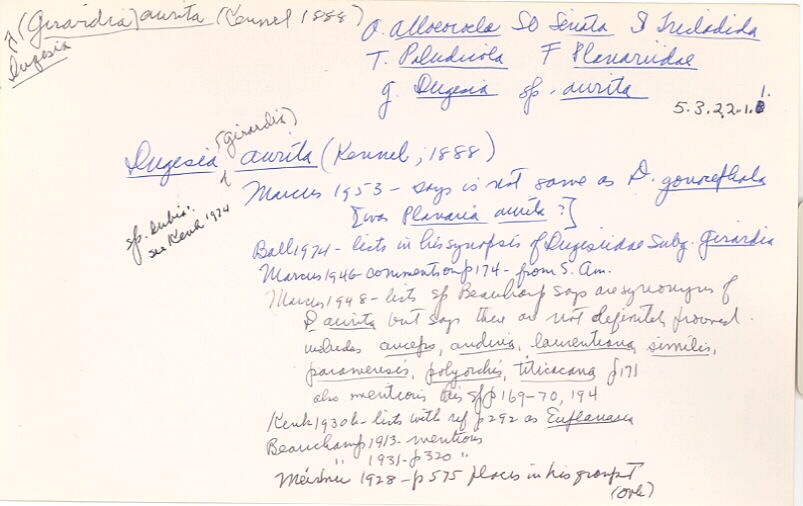 (Girardia) aurita (Kennel 1888)
Dugesia
O. Alloeocoela SO Seriata S Tricladida
T. Paludicola F Planariidae
g. Dugesia sp. aurita
5.3.22.1.
1.
(Girardia)
Dugesia aurita (Kennel, 1888)
Marcus 1953 - says is not same as D. gonocephala
[was Planaria aurita?]
sp. dubia..
see Kenk 1974
Ball 1974 - lists in his synopsis of Dugesiidae Subg. Girardia
Marcus 1946 - comment on p174 - from S. Am.
Marcus 1948 - lists sp Beauchamp says are synonyms of
D aurita but says there are not definitely proved.
includes anceps, andina, laurentiana, similis,
paramensis, polyorchis, titicacana p171
also mentions this sp p169-70, 194
Kenk 1930b - lists with ref p292 as Euplanaria
Beauchamp 1913 - mentions
" 1931 - p320 "
Meixner 1928 - p575 places in his group I